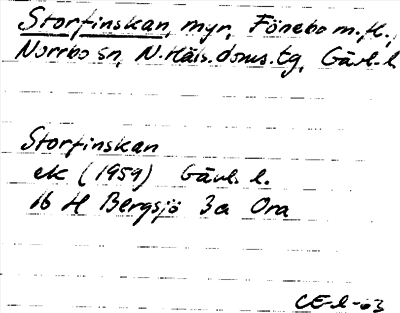 Storfinskan, myr, Fönebo m.fl.,
Norrbo sn, N.Häls.doms.tg, Gävl.l.
Storfinskan
ek (1959) Gävl. l.
16 H Bergsjö 3a Ora
CE-l-03